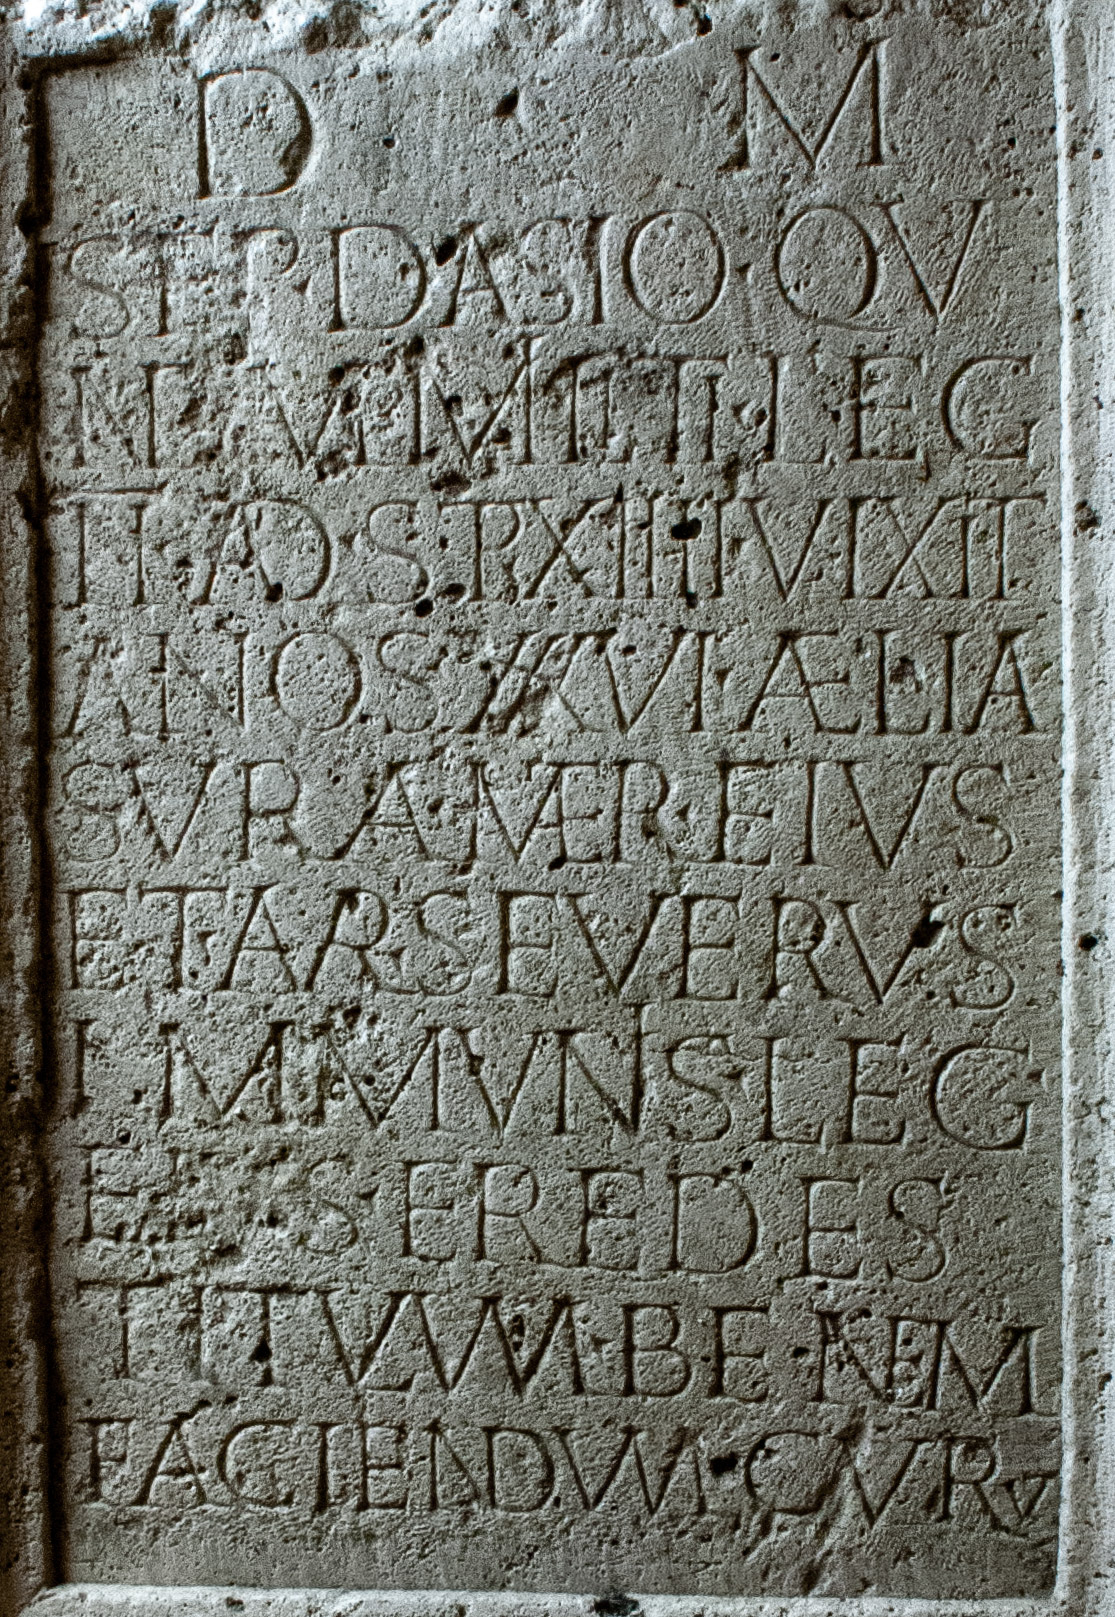 D M
SEP DASIO QV
NDAM MILIT LEG
II AD STP XIII VIXIT
ANOS XXXVI AELIA
SVRA MATER EIVS
ET AR SEVERVS
IMMVNS LEG
EIVS EREDES
TITVLVM BENEM
FACIENDVM CVRV